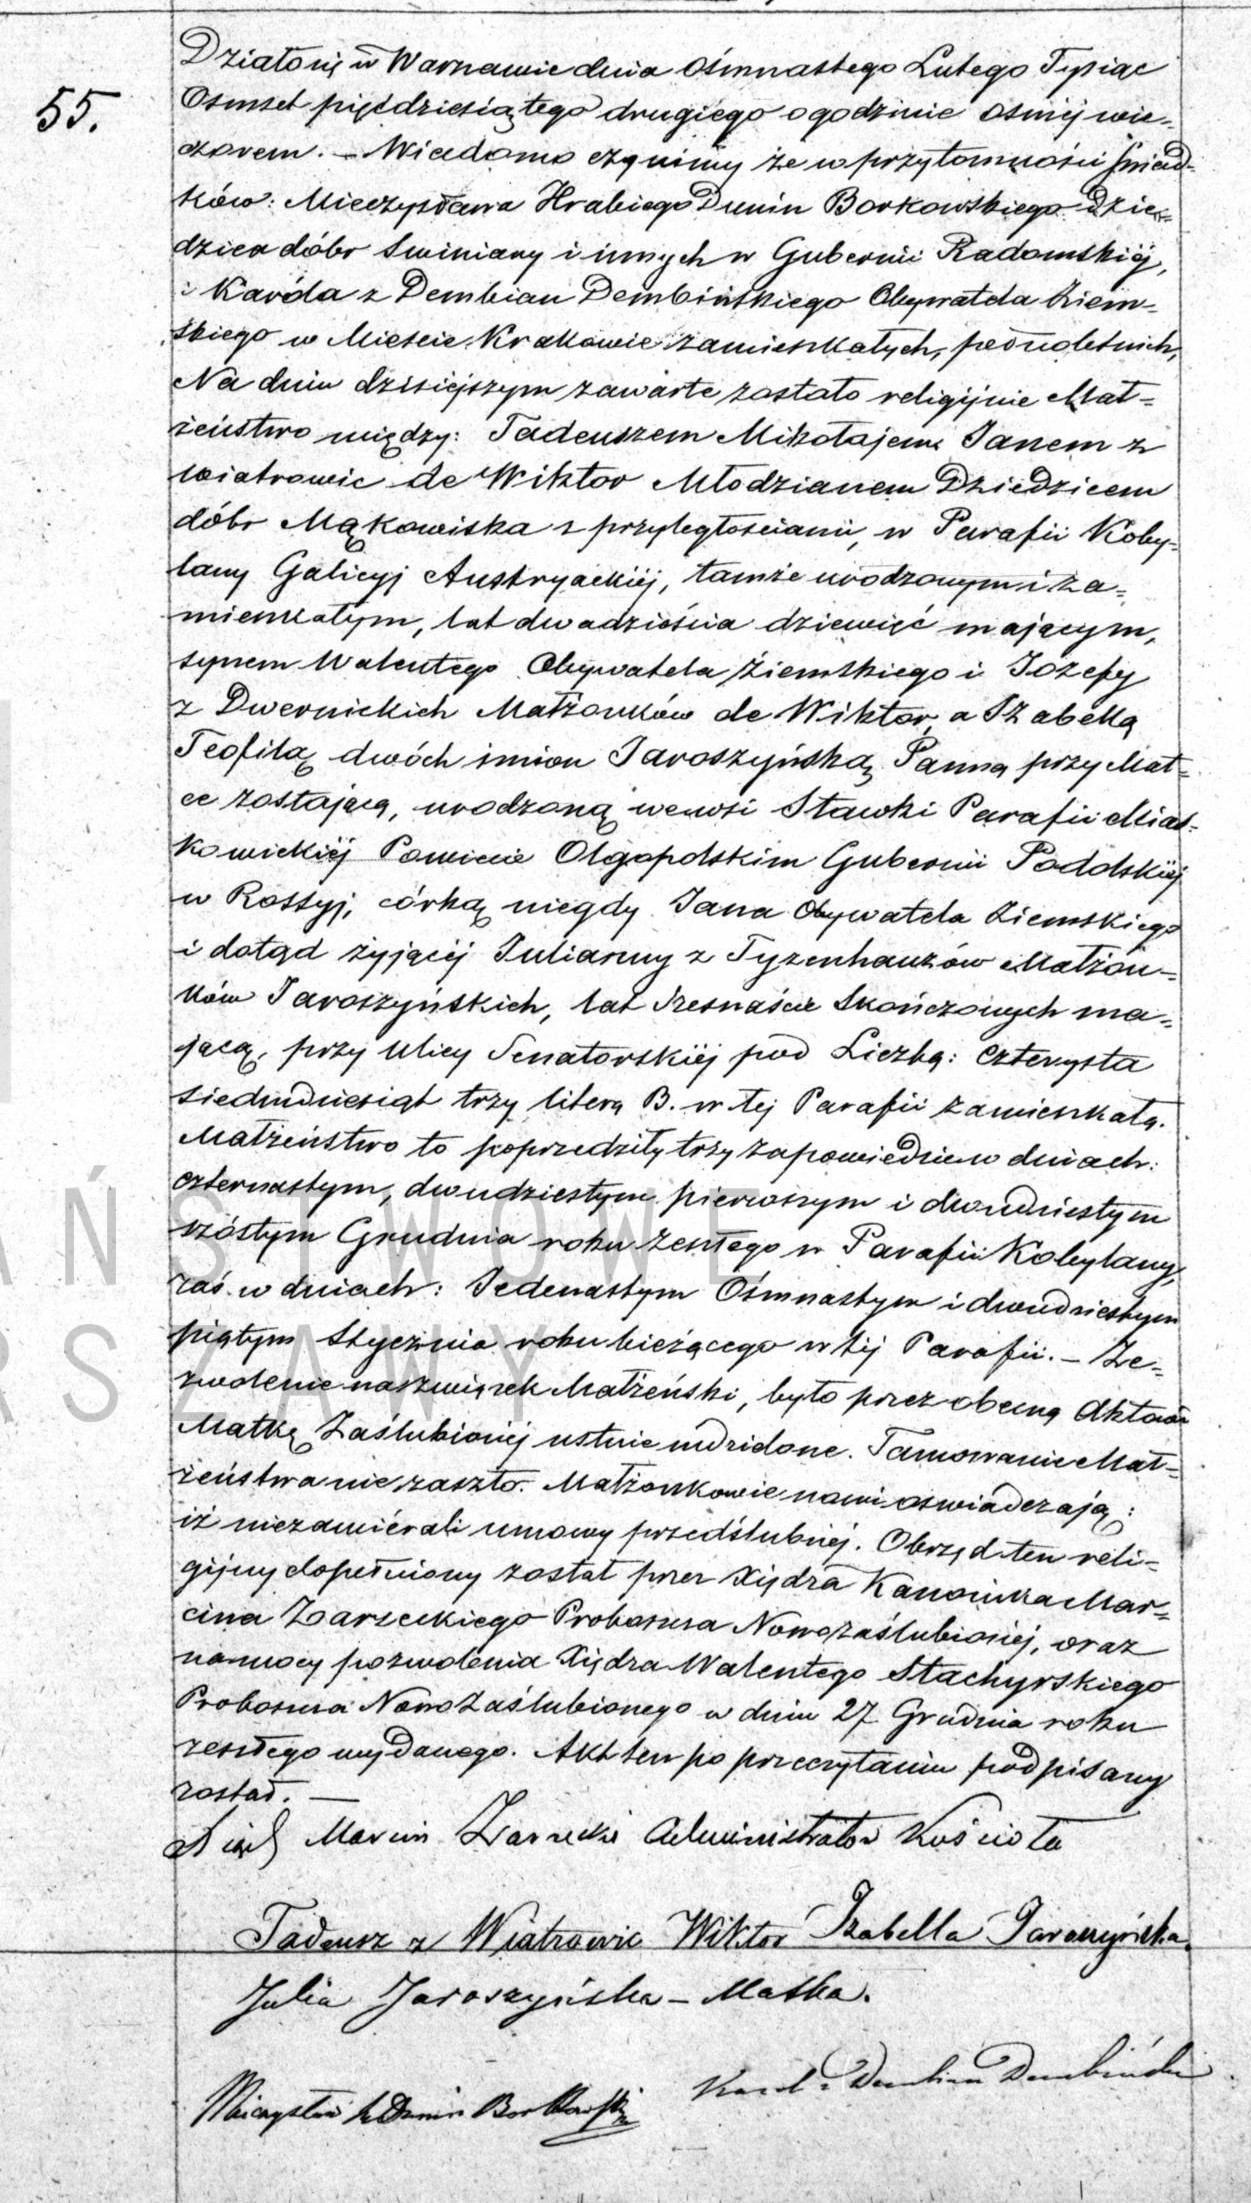 55.
Działo się w Warszawie dnia Ośmnastego Lutego Tysiąc
Ośmset pięćdziesiątego drugiego o godzinie ósmej wie-
czorem. – Wiadomo czynimy że w przytomności świad-
ków: Mieczysława Hrabiego Dunin Borkowskiego Dzie-
dzica dóbr Swiniary i innych w Gubernii Radomskiéj,
i Karóla z Dembian Dembińskiego Obywatela Ziem-
skiego w Mieście Krakowie zamieszkałych, pełnoletnich,
Na dniu dzisiejszym zawarte zostało religijnie Mał-
żeństwo między: Tadeuszem Mikołajem Janem z
Wiatrowic de Wiktor Młodzianem Dziedzicem
dóbr Mąkowiska z przyległościami, w Parafii Koby-
lany Galicyj Austryackiéj, tamże urodzonym i za-
mieszkałym, lat dwadzieścia dziewięć mającym,
synem Walentego Obywatela Ziemskiego i Józefy
z Dwernickich Małżonków de Wiktor, a Izabellą
Teofilą dwóch imion Jaroszyńską Panną przy Mat-
ce zostającą, urodzoną we wsi Stawki Parafii Miast-
kowickiéj Powiecie Olgopolskim Gubernii Podolskiéj
w Rossyj, córką niegdy Jana Obywatela Ziemskiego
i dotąd żyjącéj Julianny z Tyzenhauzów Małżon-
ków Jaroszyńskich, lat szesnaście skończonych ma-
jącą, przy Ulicy Senatorskiéj pod Liczbą: czterysta
siedmdziesiąt trzy literą B. w tej Parafii zamieszkałą.
Małżeństwo to poprzedziły trzy zapowiedzie w dniach:
czternastym, dwudziestym pierwszym i dwudziestym
szóstym Grudnia roku zeszłego w Parafii Kobylany,
zaś w dniach: Jedenastym Ośmnastym i dwudziestym
piątym Stycznia roku bieżącego w téj Parafii. – Ze-
zwolenie na związek Małżeński, było przez obecną Aktowi
Matkę Zaślubionéj ustnie udzielone. Tamowanie Mał-
żeństwa nie zaszło. Małżonkowie nowi oswiadczają:
iż niezawiérali umowy przedślubnéj. Obrzęd ten reli-
gijny dopełniony został przez Xiędza Kanonika Mar-
cina Zarzeckiego Proboszcza Nowozaślubionéj, oraz
na mocy pozwolenia Xiędza Walentego Stachyrskiego
Proboszcza NowoZaślubionego w dniu 27 Grudnia roku
zeszłego wydanego. Akt ten po przeczytaniu podpisany
został. –
Xiądz Marcin Zarzecki Administrator Kościoła
Tadeusz z Wiatrowic Wiktor Izabella Jaroszyńska
Julia Jaroszyńska – Matka.
Karol z Dembian Dembiński
Mieczysław hr Dunin Borkowski
AŃSTWOWE
RSZAWY